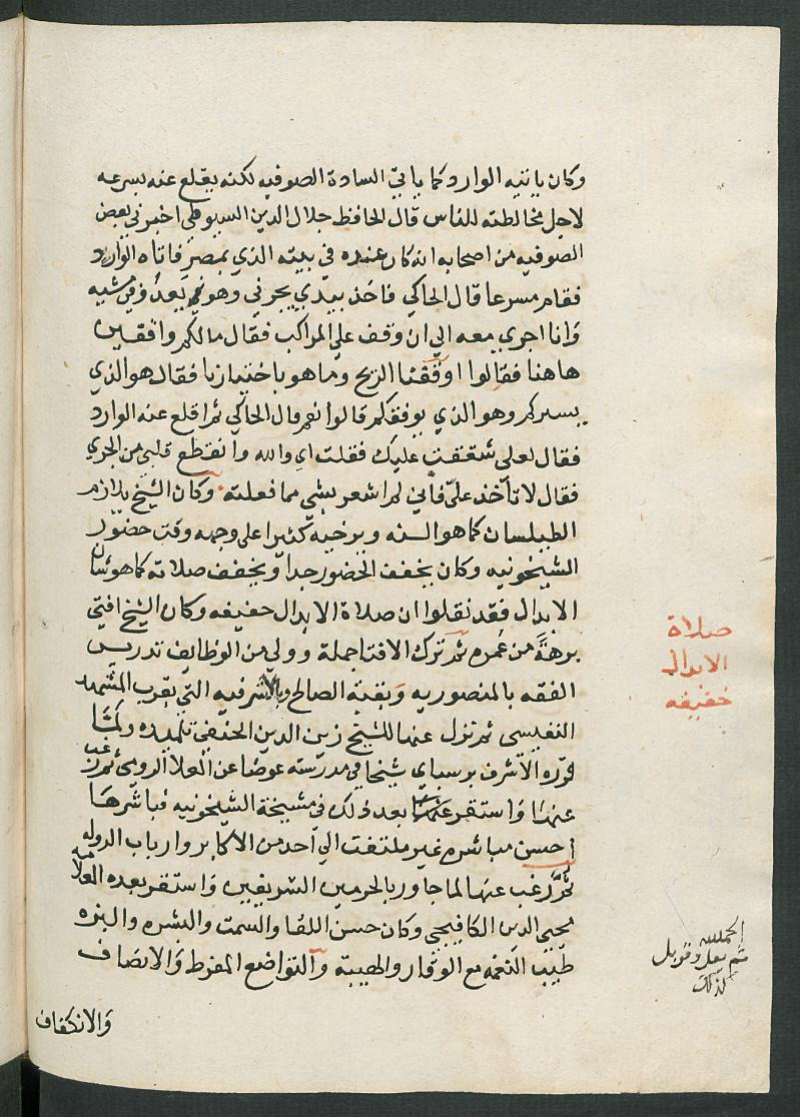 وكان ياتيه الوارد كما ياتي السادة الصوفيه لكنه يقلع عنه بسرعه
لاجل مخالطته للناس قال الحافظ جلال الدين السيوطي اخبرني بعض
الصوفيه من اصحابه انه كان عنده في بيته الذي بمصر فاتاه الوارد
فقام مسرعا قال الحاكي فاخذ بيدي يجرني وهو يعدو في مشيه
وانا اجري معه الي ان وقف علي المراكب فقال مالكم واقفين
هاهنا فقالوا اوقفنا الريح وما هو باختيارنا فقال هو الذي
يسيركم وهو الذي يوقفكم قالوا نعم قال الحاكي ثم اقلع عنه الوارد
فقال لعلي شققت عليك فقلت اي والله وانقطع قلبي من الجري
فقال لا تأخذ عليّ فأني لم اشعر بشي مما فعلته وكان الشيخ يلازم
الطيلسان كما هو السنه ويرخيه كثيرا على وجهه وقت حضور
الشيخونيه وكان يخفف الحضور جدا ويخفف صلاته كما هو شان
الابدال فقد نقلوا ان صلاة الابدال خفيفه وكان الشيخ افتي
برهةً من عمره ثم ترك الافتا جملة وولي من الوظايف تدريس
الفقه بالمنصوريه وبقبة الصالح وبالاشرفيه التي بقرب المشهد
النفيسي ثم نزل عنها للشيخ زين الدين الحنفي تلميذه ولمّا
قرره الاشرف برسباي شيخا في مدرسته عوضا عن العلا الرومي ثم رغب
عنها واستقر بعد ذلك في مشيخة الشيخونيه فباشرها
احسن مباشره غير ملتفت الي احد من الاكابر وارباب الدوله
ثم رغب عنها لما جاور بالحرمين الشريفين واستقر بعده العلامه
محيي الدين الكافيجي وكان حسن اللقا والسمت والبشره والبزه
طيب النغمه مع الوقار والهيبة والتواضع المفرط والانصاف
والانكفاف
صلاة
الابدال
خفيفه
الحمدلله
ثم بلغ وقوبل
كذلك